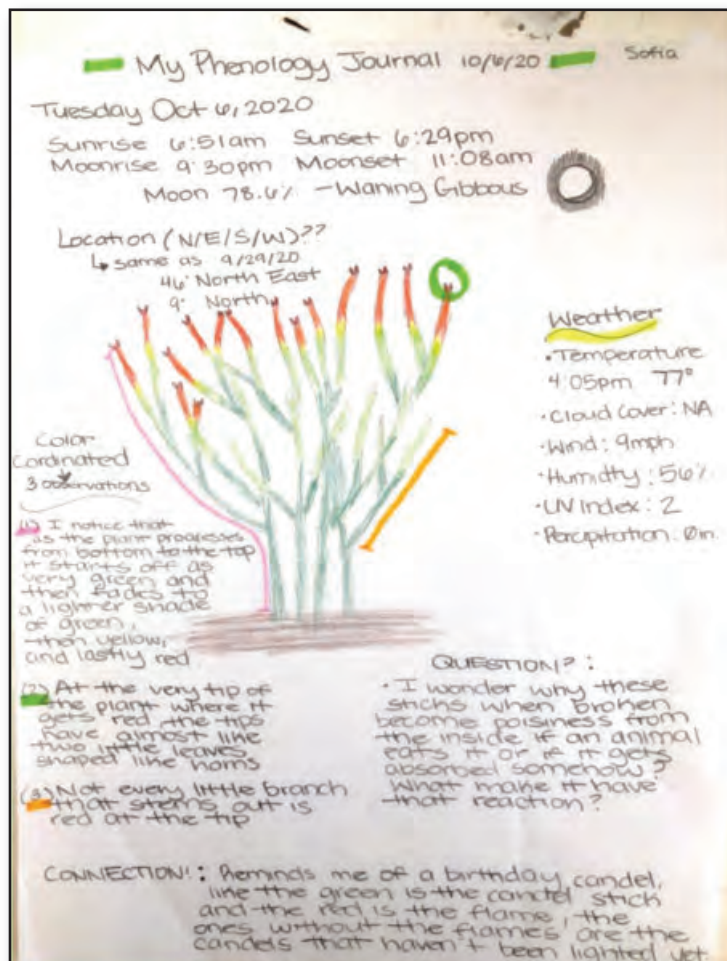 My Phenology Journal 10/6/20 Sofia
Tuesday Oct 6, 2020
Sunrise 6:51am Sunset 6:29pm
Moonrise 9:30pm Moonset 11:08am
Moon 78.6% - Waning Gibbous
Location (N/E/S/W)??
↳ same as 9/29/20
46° North East
9° North
Weather
• Temperature
4:05pm 77°
• Cloud Cover: NA
• Wind: 9mph
• Humidty: 56%
• UV Index: 2
• Percipitation: 0in.
Color
Cordinated
3 observations
(1) I notice that
as the plant progresses
from bottom to the top
it starts off as
very green and
then fades to
a lighter shade
of green,
then yellow,
and lastly red
(2) At the very tip of
the plant where it
gets red the tips
have almost like
two little leaves
shaped like horns
(3) Not every little branch
that stems out is
red at the tip
QUESTION?:
• I wonder why these
sticks when broken
become poisiness from
the inside if an animal
eats it or if it gets
absorbed somehow?
What make it have
that reaction?
CONNECTION!: Reminds me of a birthday candel,
like the green is the candel stick
and the red is the flame, the
ones without the flames are the
candels that haven't been lighted yet